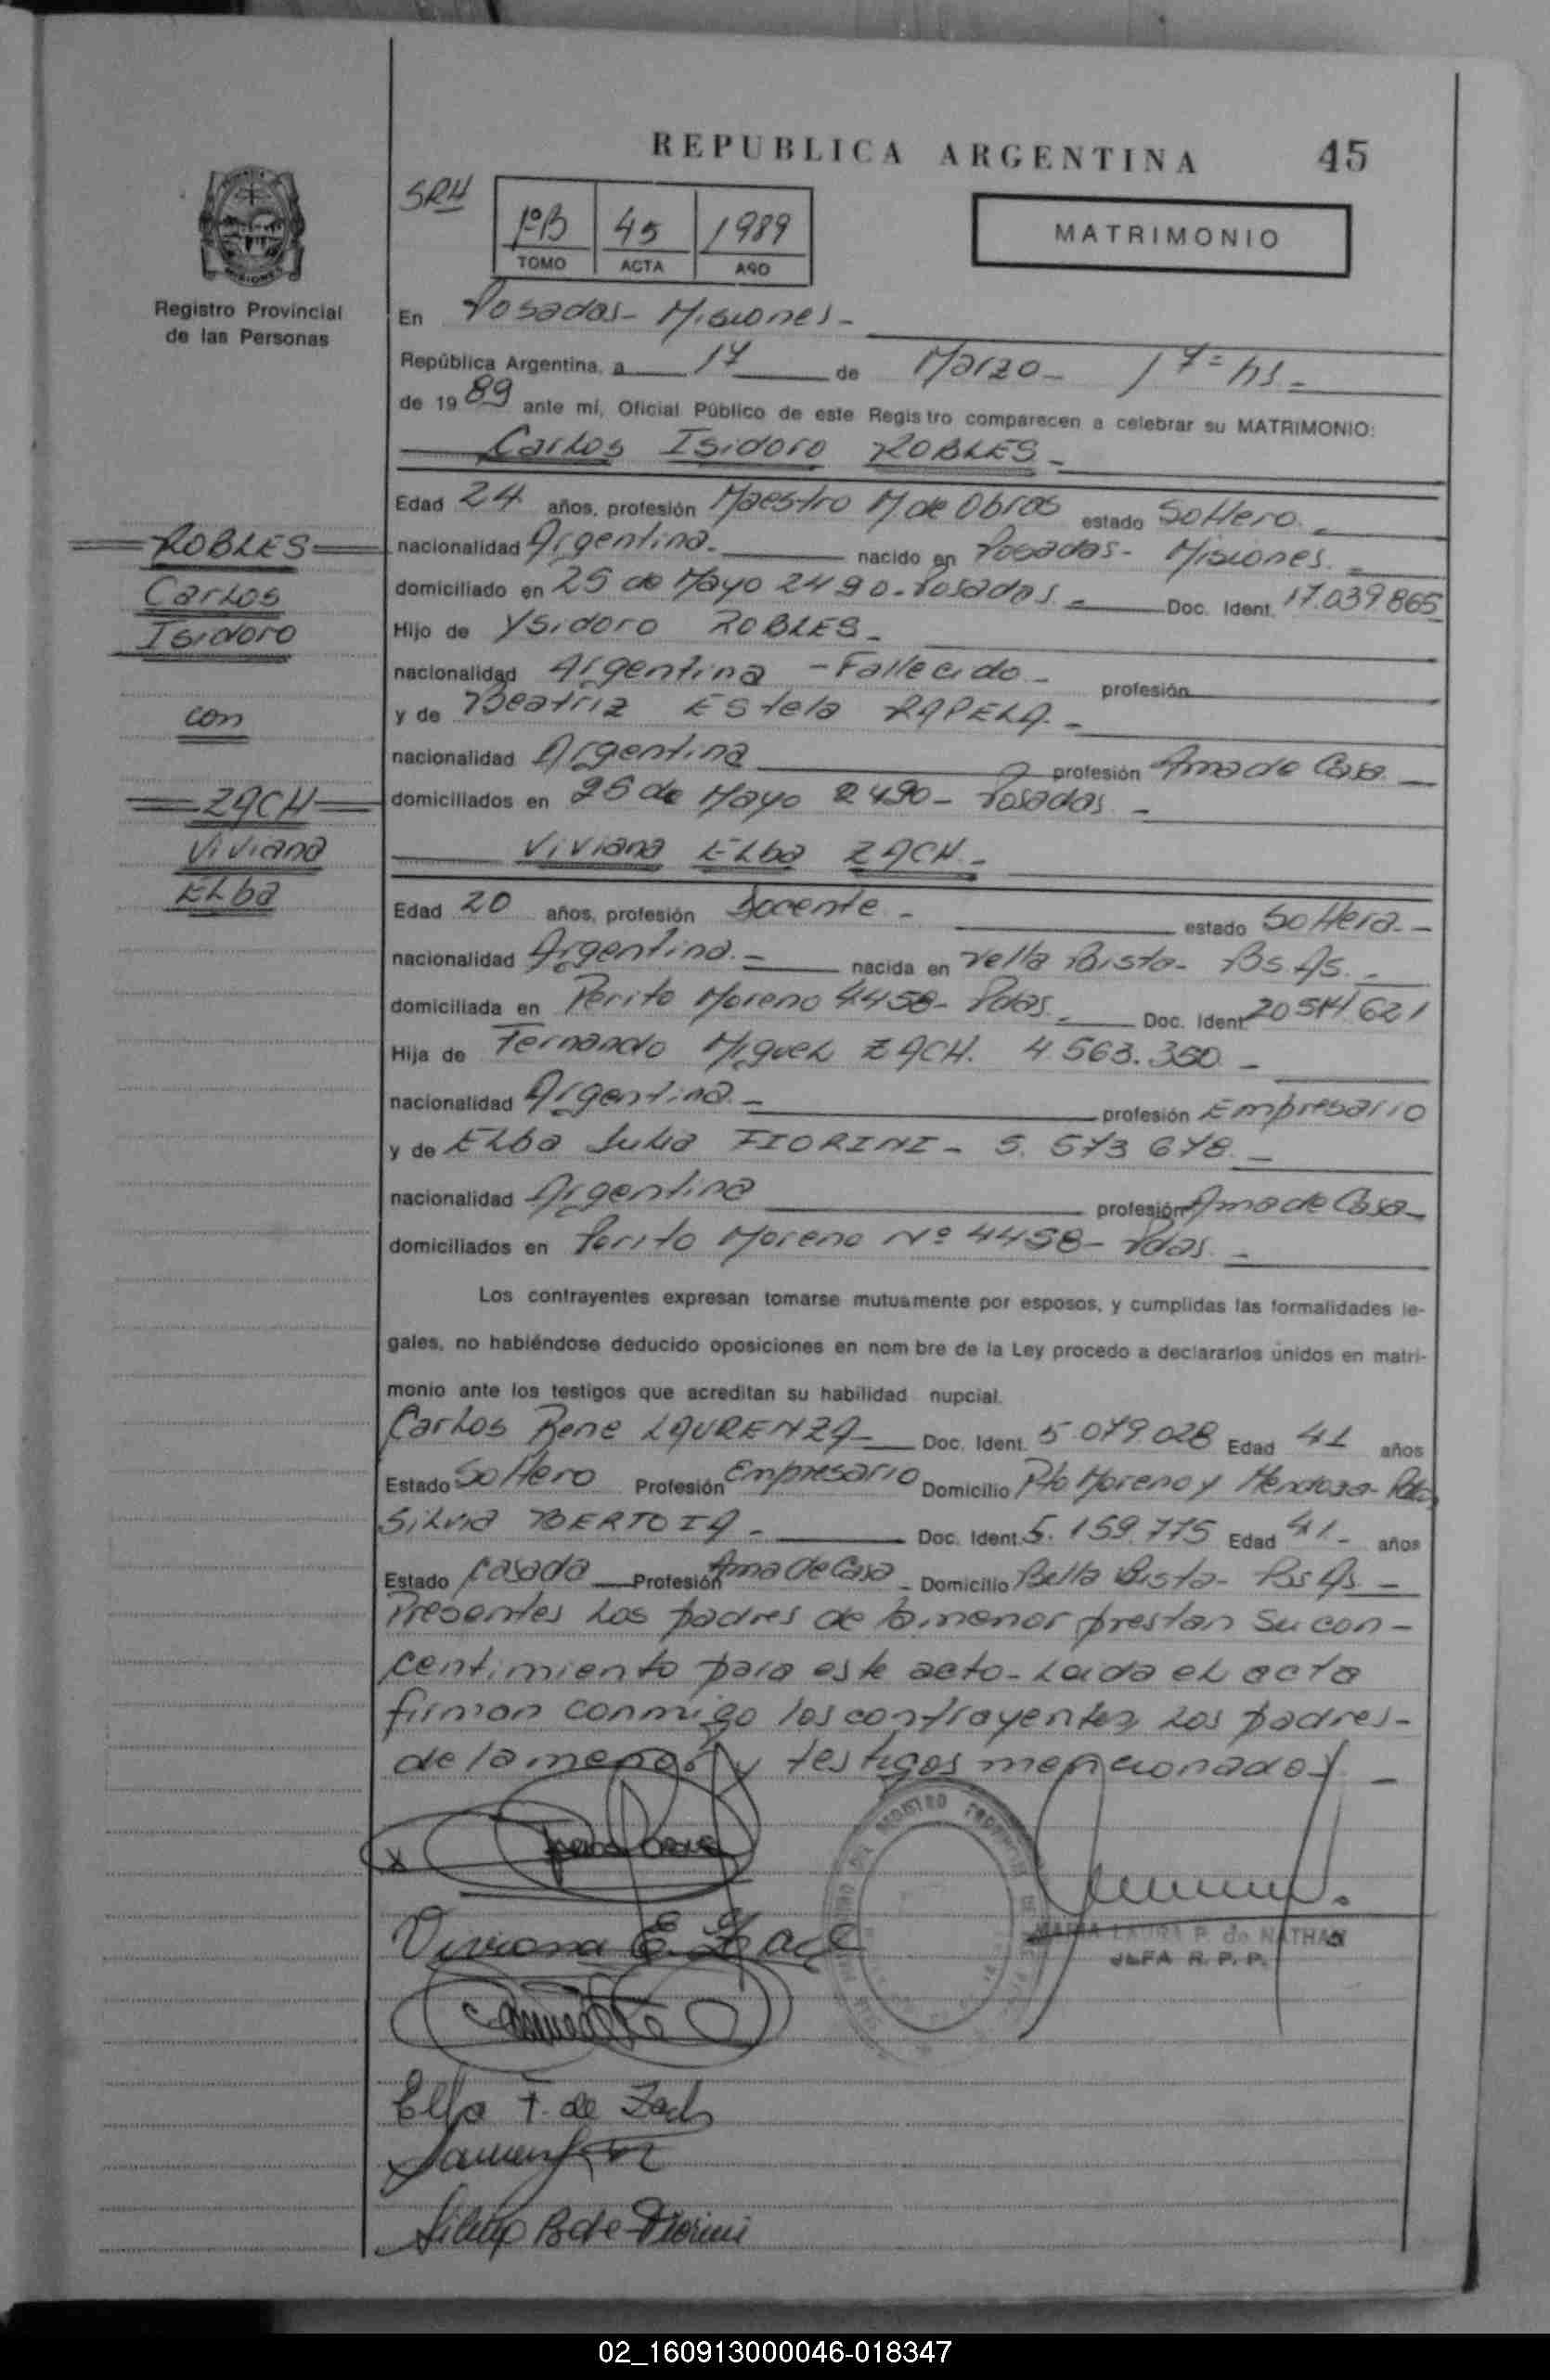 REPUBLICA ARGENTINA 45
SRH
1ºB 45 1989
TOMO ACTA AÑO
MATRIMONIO
MISIONES
Registro Provincial
de las Personas
En Posadas- Misiones-
República Argentina, a 17 de Marzo- 17= hs.-
de 1989 ante mí, Oficial Público de este Registro comparecen a celebrar su MATRIMONIO:
Carlos Isidoro ROBLES-
Edad 24 años, profesión Maestro M de Obras estado Soltero.-
nacionalidad Argentina.- nacido en Posadas- Misiones.-
domiciliado en 25 de Mayo 2490-Posadas.- Doc. Ident. 17.039.865
Hijo de Ysidoro ROBLES-
nacionalidad Argentina -Fallecido- profesión
y de Beatriz EStela RAPELA.-
nacionalidad Argentina profesión Ama de Casa.-
domiciliados en 25 de Mayo 2490- Posadas.-
ROBLES
Carlos
Isidoro
con
ZACH
Viviana
ELba
Viviana ELba ZACH.-
Edad 20 años, profesión Docente- estado Soltera.-
nacionalidad Argentina.- nacida en Vella Bista- Bs. As.-
domiciliada en Perito Moreno 4458- Pdas.- Doc. Ident. 20514.621
Hija de Fernando MigueL ZACH. 4.563.350.-
nacionalidad Argentina.- profesión Empresario
y de ELba Julia FIORINI- 5.573 678.-
nacionalidad Argentina profesión Ama de Casa-
domiciliados en Perito Moreno Nº 4458- Pdas.-
Los contrayentes expresan tomarse mutuamente por esposos, y cumplidas las formalidades le-
gales, no habiéndose deducido oposiciones en nom bre de la Ley procedo a declararlos unidos en matri-
monio ante los testigos que acreditan su habilidad nupcial.
CarLos Rene LAURENZA- Doc. Ident. 5.079.028 Edad 41 años
Estado Soltero Profesión Empresario Domicilio Pto Moreno y Mendoza- Pdas
SiLvia BERTOIA- Doc. Ident. 5.159.775 Edad 41- años
Estado Casada Profesión Ama de Casa- Domicilio Bella Bista- Bs As-
Presentes Los padres de la menor prestan su con-
centimiento para este acto- Leida eL acta
firman conmigo los contrayentes, Los padres-
de la menor y testigos mencionados-
x
Viviana E. Zach
MARIA LAURA P. de NATHAN
JEFA R. P. P.
Elba F. de Zach
Silvia B de Fiorini
02_160913000046-018347